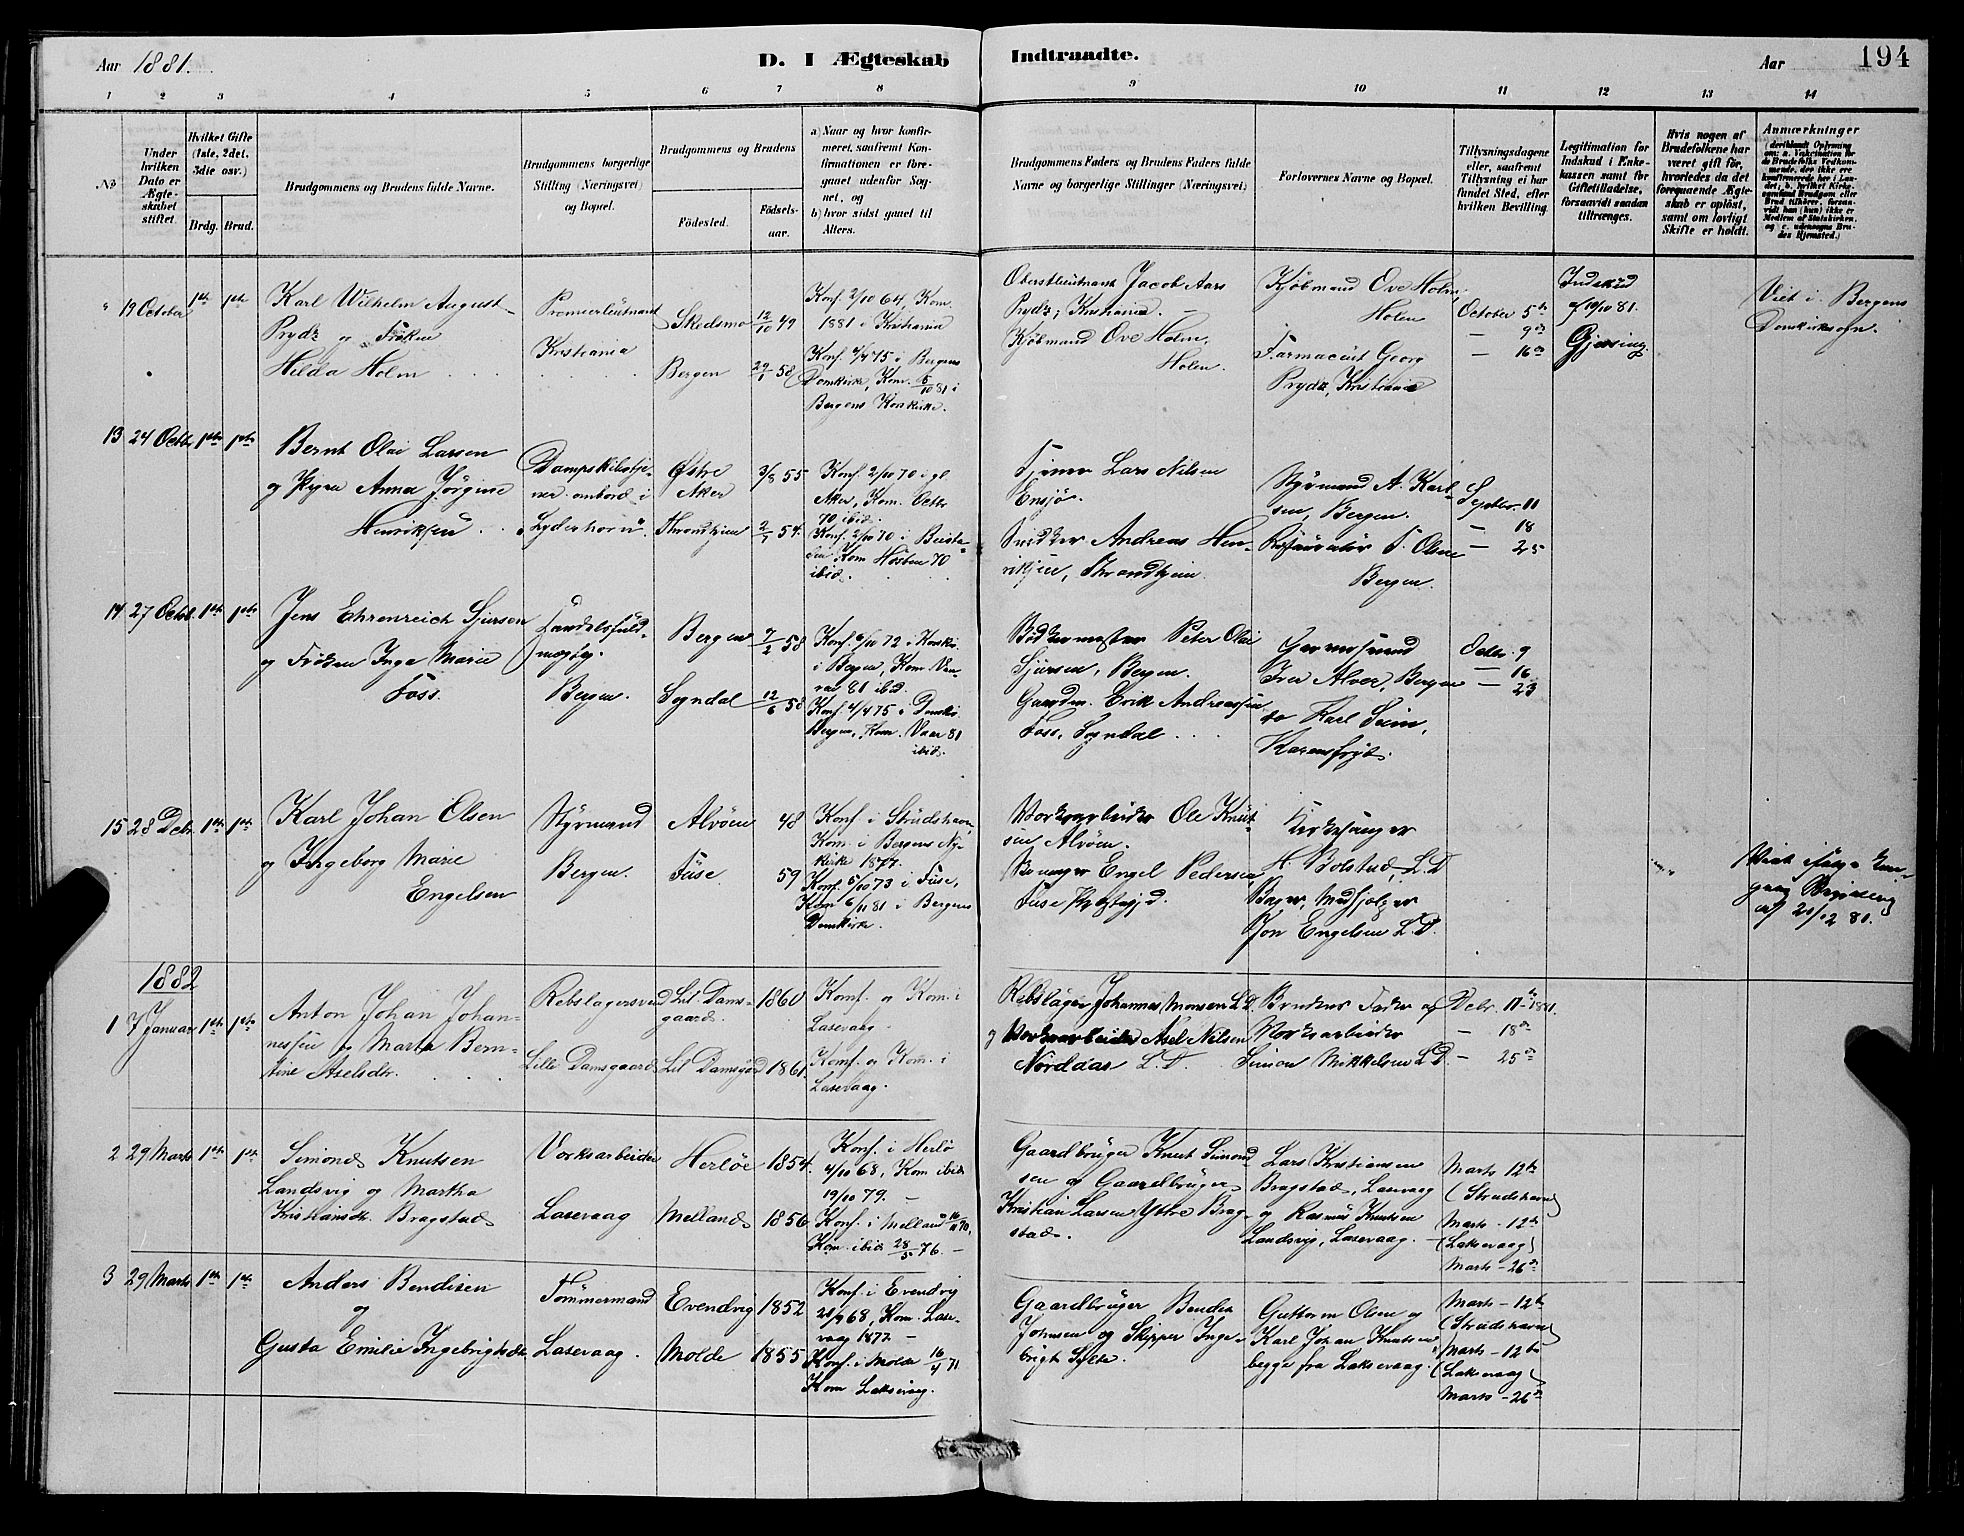 Aar 1881.
D. I Ægteskab Indtraadte.
Aar
194
1 2 3 4 5 6 7 8 9 10 11 12 13 14
No
Under hvilken Dato er Ægteskabet stiftet.
Hvilket Gifte (1ste, 2det, 3die osv.)
Brdg. Brud.
Brudgommens og Brudens fulde Navne.
Brudgommens borgerlige Stilling (Næringsvei) og Bopæl.
Brudgommens og Brudens
Fødested. Fødselsaar.
a) Naar og hvor konfirmeret, saafremt Konfirmationen er foregaaet udenfor Sognet, og
b) hvor sidst gaaet til Alters.
Brudgommens Faders og Brudens Faders fulde Navne og borgerlige Stillinger (Næringsvei)
Forlovernes Navne og Bopæl.
Tillysningsdagene eller, saafremt Tillysning ei har fundet Sted, efter hvilken Bevilling.
Legitimation for Indskud i Enkekassen samt for Giftetilladelse, forsaavidt saadan tiltrænges.
Hvis nogen af Brudefolkene har været gift før, hvorledes da det foregaaende Ægteskab er opløst, samt om lovligt Skifte er holdt.
Anmærkninger
(deriblandt Oplysning om: a. Vakcination for de Brudefolks Vedkommende, der ikke ere konfirmerede her i Landet; b. hvilket Kirkesamfund Brudgom eller Brud tilhører, forsaavidt han (hun) ikke er Medlem af Statskirken, og c. udensogns Brudes Hjemsted.)
" 19 October 1ste 1ste
Karl Wilhelm August
Prydz og Frøken
Hilda Holm
Premierlieutnant
Kristiania
Skedsmo 12/10 49
Bergen 29/1 58
Konf. 2/10 64, Kom.
1881 i Kristiania
Konf. 4/4 75 i Bergens
Domkirke, Kom. 5/10 81 i
Bergens Korskirke.
Oberstlieutnant Jacob Aars
Prydz, Kristiania.
Kjøbmand Ove Holm,
Holen.
Kjøbmand Ove Holm,
Holen
Farmaceut Georg
Prydz, Kristiania
October 5te
— 9de
— 16de
Indskud
af 19/10 81.
Gjersing
Viet i Bergens
Domkirkesogn.
13 24 Octbr 1ste 1ste
Bernt Olai Larsen
og Pigen Anna Jørgine
Henriksen
Dampskibstjener ombord i
"Lyderhorn".
Østre
Aker 3/8 55
Throndhjem 2/7 54.
Konf. 2/10 70 i gl.
Aker, Kom. Octbr
70 ibid.
Konf. 2/10 70 i
Kom Høsten 70
ibid.
Tjener Lars Nilsen
Ensjø.
Snedker Andreas Henriksen, Throndhjem.
Styrmand A. Karlsen, Bergen.
Restauratør T. Olsen
Bergen.
Septbr. 11
— 18
— 25
14 27 Octbr. 1ste 1ste
Jens Ehrenreich Sjursen
og Frøken Inga Marie
Foss.
Handelsfuldmægtig.
Bergen.
Bergen 7/2 58
Sogndal 12/6 58
Konf. 6/10 72 i Korskir.
i Bergen, Kom
81 ibid.
Konf. 4/4 75 i Domkir.
Bergen, Kom. Vaar 81
ibid.
Bødkermester Peter Olai
Sjursen, Bergen.
Gaardm. Erik Andreassen
Foss, Sogndal
Iver Alver, Bergen
do Karl Seim,
Octbr. 9
— 16
— 23
15 28 Debr. 1ste 1ste
Karl Johan Olsen
og Ingeborg Marie
Engelsen
Styrmand
Bergen.
Alvøen 48
Fuse 59
Konf. i Strudshavn,
Kom. i Bergens Nykirke 1877.
Konf. 5/10 73 i Fuse,
Kom 6/11 81 i Bergens
Domkirke.
Værksarbeider Ole Knutsen Alvøen.
Engel Pedersen
Fuse Prgj.
Kirkesanger
H. Bolstad, L.D.
Jon Engelsen L.D.
Viet ifølge
af 20/12 81.
1882
1 7 Januar 1ste 1ste
Anton Johan Johannessen og Marta Berntine Axelsdtr.
Rebslagersvend
Lille Damsgaard
Lil. Damsgaard. 1860
Lil Damsgård 1861.
Konf. og Kom. i
Laxevaag.
Konf. og Kom. i
Laxevaag.
Rebslager Johannes Monsen L.D.
og Værksarbeider Axel Nilsen
Norddas L.D.
Brudens Fader og
Værksarbeider
Simon Mikkelsen L.D.
Debr. 11te 1881.
— 18de
— 25de
2 29 Marts 1ste 1ste
Simond Knutsen
Landsvig og Martha
Kristiansdr. Bragstad
Værksarbeider
Laxevaag
Herløe 1854.
Melland 1856
Konf. i Herlø
4/10 68, Kom ibid
19/10 79.
Konf. i Melland 16/10 70,
Kom. ibid 28/5 76.
Gaardbruger Knut Simondsen og Gaardbruger
Kristian Larsen Ytre Bragstad.
Lars Kristiansen
Bragstad, Laxevaag
og Rasmus Knutsen
Landsvig, Laxevaag.
Marts 12te
(Strudshavn)
Marts – 12te
(Laksevaag)
Marts – 26de
3 29 Marts 1ste 1ste
Anders Bendixen
og
Gusta Emilie Ingebrigtsdtr.
Tømmermand
Laxevaag.
Evendvig 1852
Molde 1855
Konf. i Evendvig
20/9 68, Kom. Laxevaag 1877
Konf. i Molde 16/4 71
Kom Laksevaag.
Gaardbruger Bendix
Johnsen og Skipper Ingebrigt Sylte.
Guttorm Olsen og
Karl Johan Knutsen
begge fra Laksevaag.
Marts – 12te
(Strudshavn)
Marts – 12te
(Laksevaag)
Marts – 26de